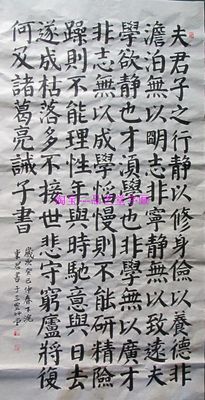 夫君子之行靜以修身儉以養德非
澹泊無以明志非寧靜無以致遠夫
學欲靜也才須學也非學無以廣才
非志無以成學慆慢則不能研精險
躁則不能理性年與時馳意與日去
遂成枯落多不接世悲守窮廬將復
何及諸葛亮誡子書